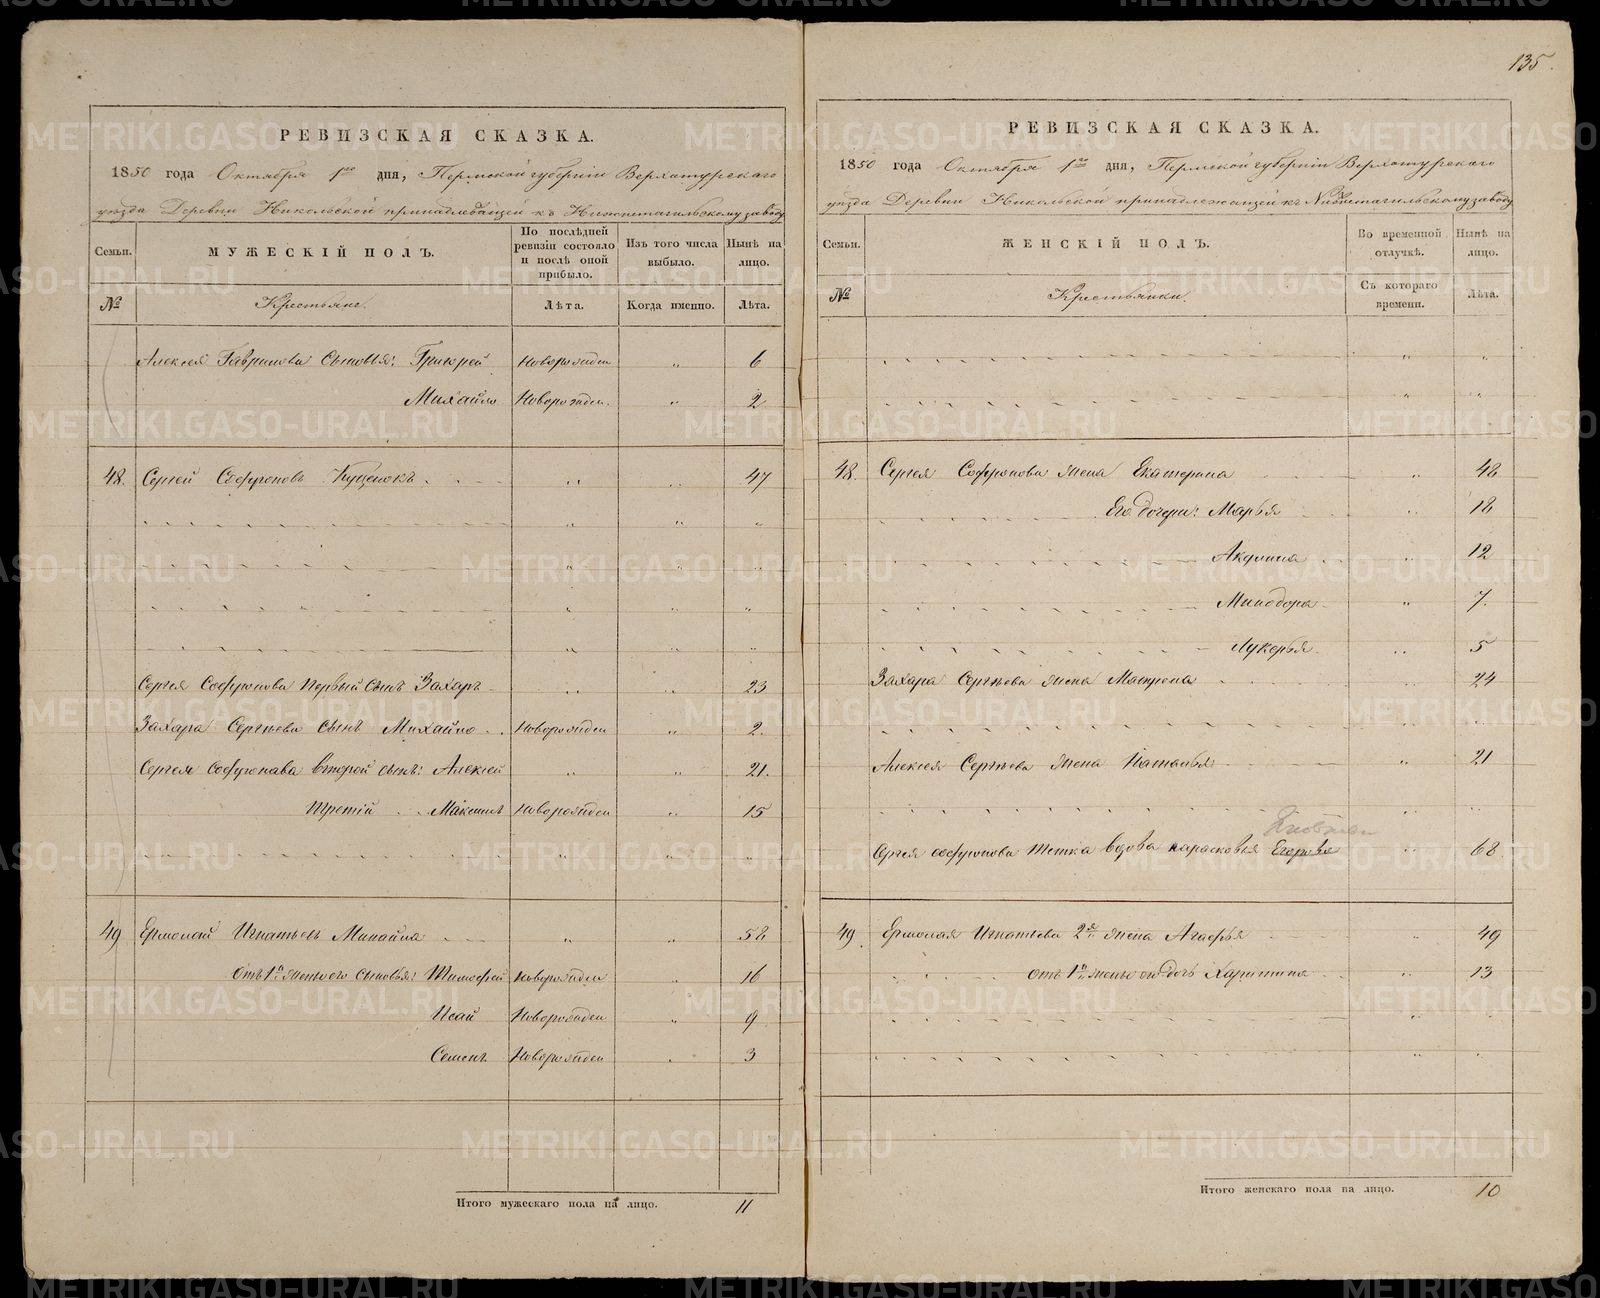 135.
РЕВИЗСКАЯ СКАЗКА.
1850 года Октября 1го дня, Пермской губернии Верхотурскаго
уезда Деревни Никольской принадлежащей къ Нижнетагильскому заводу
Семьи. МУЖЕСКІЙ ПОЛЪ. По послѣдней ревизіи состояло и послѣ оной прибыло. Изъ того числа выбыло. Нынѣ на лицо.
№ Крестьяне. Лѣта. Когда именно. Лѣта.
Алексея Гаврилова Сыновья: Григорей Новорожден 6
Михайло Новорожден. 2
48. Сергей Софроновъ 47
Сергея Софронова Первый Сынъ Захаръ 23
Захара Сергѣева Сынъ Михайло Новорожден 2.
Сергея Софронова второй сынъ: Алексей 21.
Третій Максимъ Новорожден 15
49 Ермолай Игнатьевъ Минайла 58
отъ 1й жены его сыновья: Тимофей Новорожден 16
Исай Новорожден 9
Семенъ Новорожден 3
Итого мужескаго пола на лицо. 11
РЕВИЗСКАЯ СКАЗКА.
1850 года Октября 1го дня, Пермской губерніи Верхотурскаго
уезда Деревни Никольской принадлежащей къ Нижнетагильскому заводу
Семьи. ЖЕНСКІЙ ПОЛЪ. Во временной отлучкѣ. Нынѣ на лицо.
№ Крестьянки. Съ котораго времени. Лѣта.
48. Сергея Софронова жена Екатерина 48
Его дочери: Марья 18
Акулина 12
Минодора 7.
Лукерья 5
Захара Сергѣева жена Матрена 24
Алексея Сергѣева жена Наталья 21
Сергея Софронова тетка вдова Парасковья Егорова 68
49. Ермолая Игнатьева 2я жена Агафья 49
отъ 1й жены его дочь Харитина 13
Итого женскаго пола на лицо. 10
METRIKI.GASO-URAL.RU